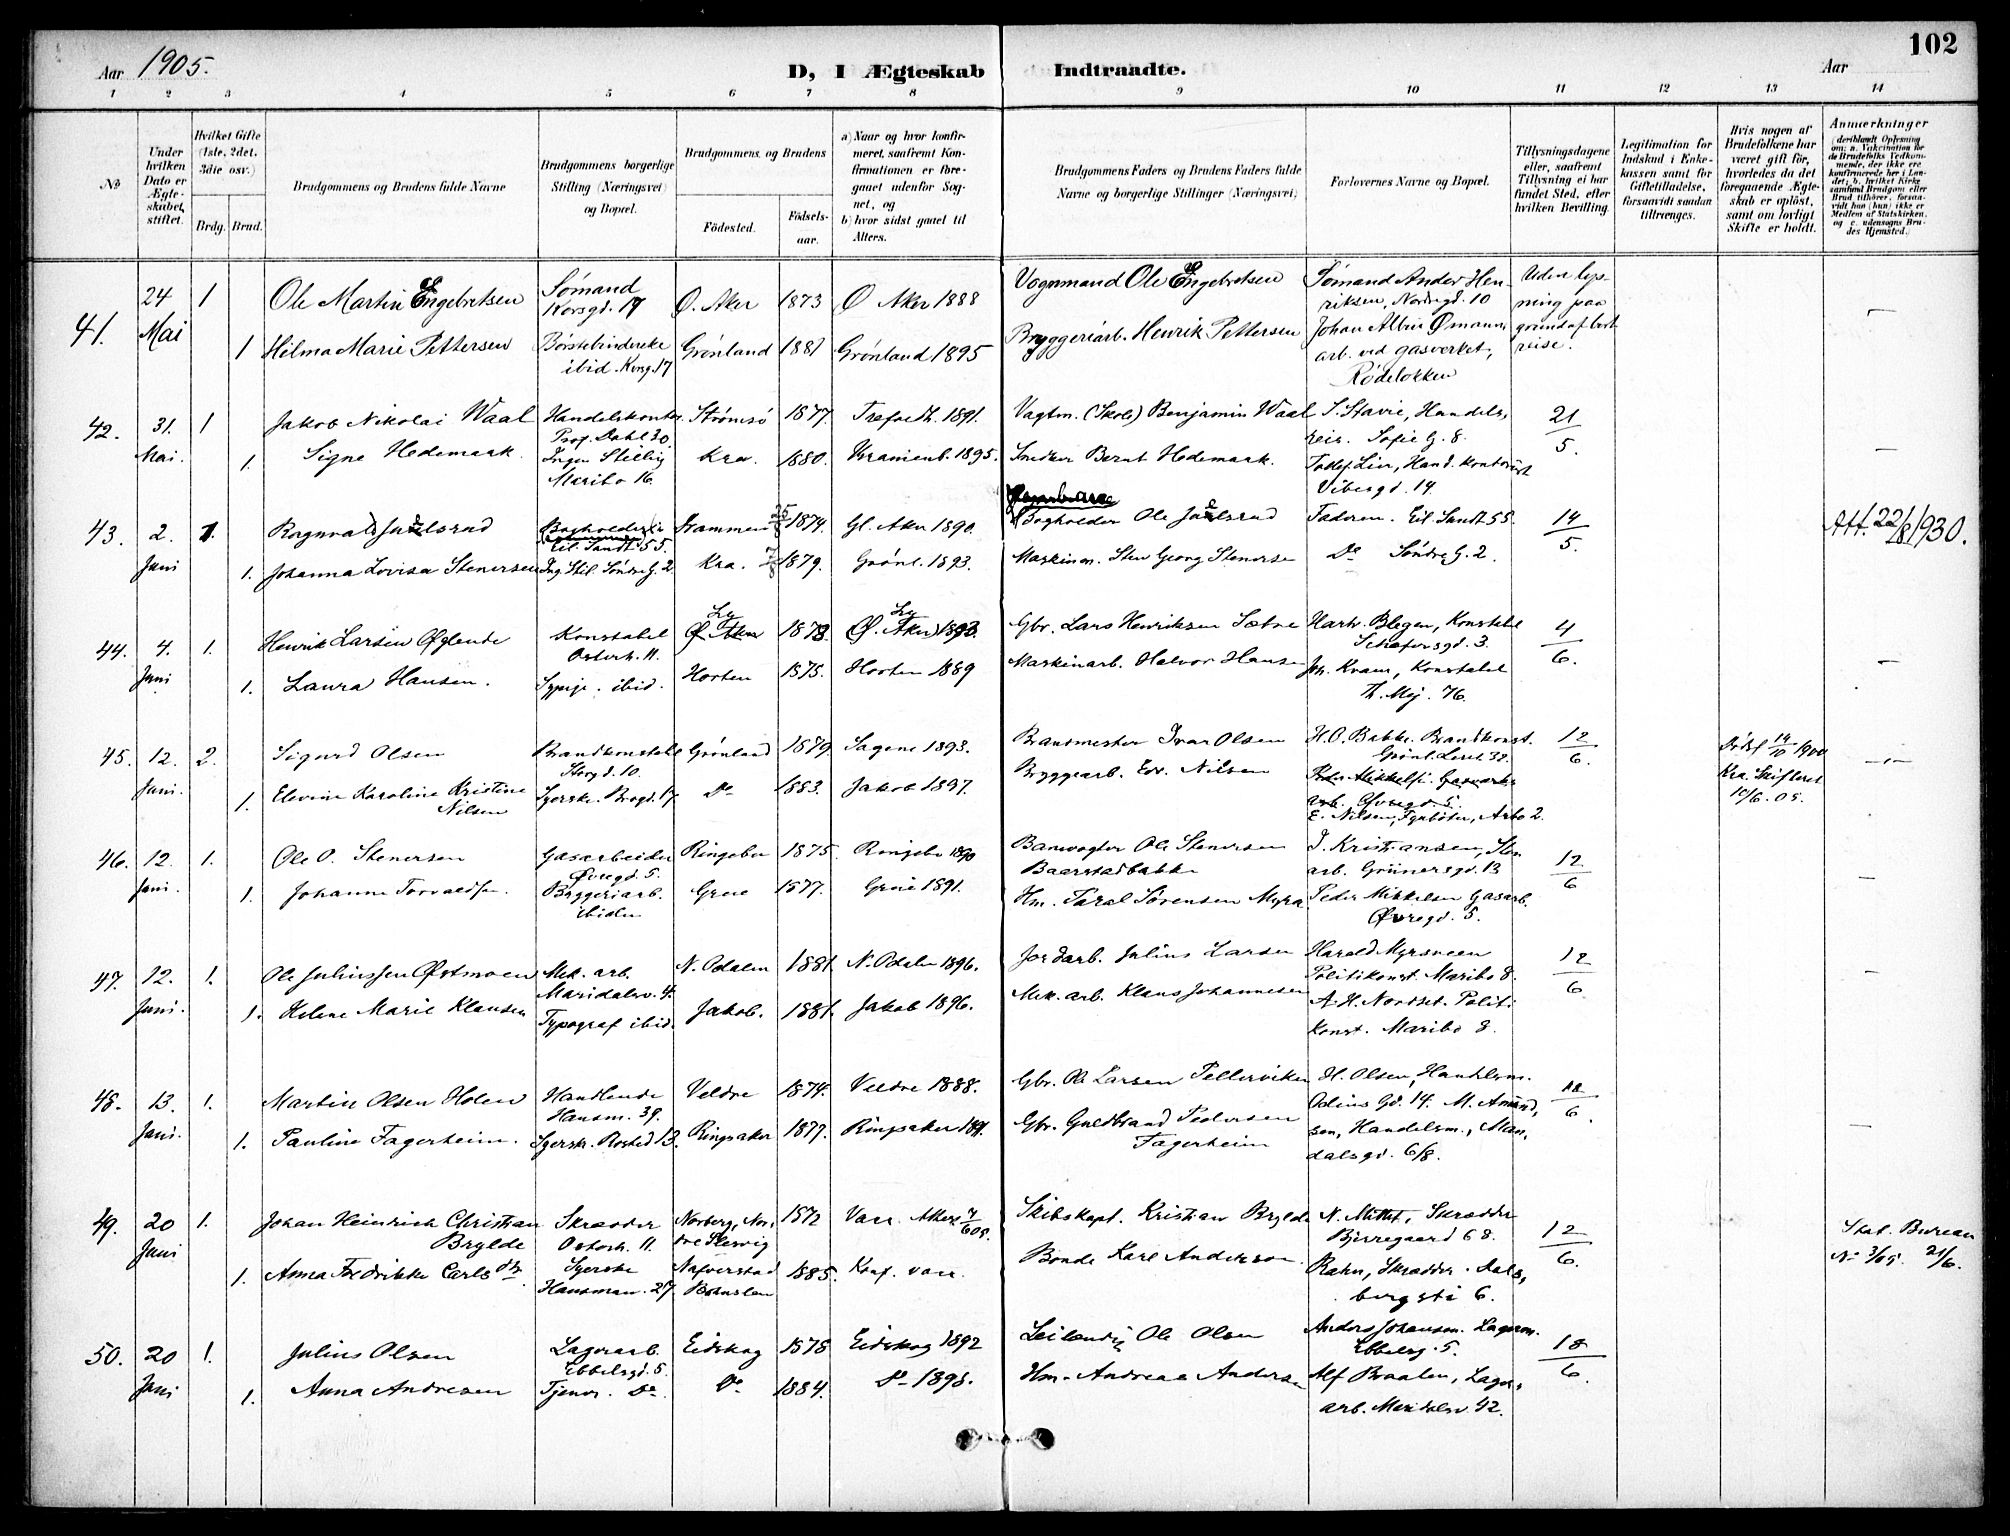 102
Aar 1905.
D, I Ægteskab Indtraadte.
Aar
1 2 3 4 5 6 7 8 9 10 11 12 13 14
№
Under hvilken Dato er Ægteskabet stiftet.
Hvilket Gifte (1ste, 2det, 3die osv.)
Brdg. Brud.
Brudgommens og Brudens fulde Navne
Brudgommens borgerlige Stilling (Næringsvei) og Bopæl.
Brudgommens og Brudens
Födested.
Födselsaar.
a) Naar og hvor konfirmeret, saafremt Konfirmationen er foregaaet udenfor Sognet, og
b) hvor sidst gaaet til Alters.
Brudgommens Faders og Brudens Faders fulde Navne og borgerlige Stillinger (Næringsvei)
Forlovernes Navne og Bopæl.
Tillysningsdagene eller, saafremt Tillysning ei har fundet Sted, efter hvilken Bevilling.
Legitimation for Indskud i Enkekassen samt for Giftetilladelse, forsaavidt saadan tiltrænges.
Hvis nogen af Brudefolkene har været gift för, hvorledes da det foregaaende Ægteskab er oplöst, samt om lovligt Skifte er holdt.
Anmærkninger
41. 24 Mai 1 Ole Martin Engebretsen Sömand Korsgd. 17 Ø. Aker 1873 Ø Aker 1888 Vognmand Ole Engebretsen Sømand Ander Henriksen, Nordregd. 10 Uden lysning paa grund af bortreise.
1 Hilma Marie Pettersen Börstebinderske ibid. Korsg. 17 Grønland 1881 Grønland 1895 Bryggeriarb. Henrik Pettersen Johan Albin Ømann arb. ved gasverket, Rødeløkken
42. 31. Mai. 1 Jakob Nikolai Waal Handelskontor Prof. Dahl 30. Strømsö 1877. Trefoldh. 1891. Vagtm. (Skole) Benjamin Waal S. Stavie, Handelsreis. Sofie G. 8. 21/5.
1. Signe Hedemark. Ingen Stilling Maribo 16. Kra. 1880. Uranienb. 1895. Snedker Bernt Hedemark. Toldef Lien, Hand. kontorist Vibesgd. 14.
43. 2. Juni 1. Ragnvald Juelsrud Bogholder Eil. Sundt 55. Drammen 1874. Gl. Aker 1890. Bogholder Ole Juelsrud Faderen. Eil. Sundt 55. 14/5. Att. 22/8 1930.
1. Johanna Lovisa Stenersen Ing. Stil. Söndre G. 2 Kra. 1879. Grønl. 1893. Maskinm. Sten Georg Stenersen Do Söndre G. 2.
44. 4. Juni 1. Henrik Larsen Øglende Konstabel Osterh. 11. Ly Ø. Aker 1878. Ly (Ø. Aker) 1893. Gbr. Lars Henriksen Sætre Hartv. Blegen, Konstabel Schafersgd. 3. 4/6.
1. Laura Hansen. Sypige ibid. Horten 1875. Horten 1889 Maskinarb. Halvor Hansen Joh. Kraus, Konstabel Th. Mej. 76.
45. 12. Juni. 2. Sigurd Olsen Brandkonstabel Storgd. 10. Grønland 1879. Sagene 1893. Brandmester Ivar Olsen H. O. Bakke. Brandkonst. Grönl. Leret 32. 12/6. Dödsf 19/10 1900 Kra. Skifteret 10/6. 05.
1. Elevine Karoline Kristine Nilsen Syerske. Brogd. 17 Do 1883. Jakob 1897. Byggearb. Edv. Nilsen Peder Mikkelsen. Gasverksarb. Øvregd. 5. E. Nilsen, Fyrböter, Arbo 2.
46. 12. Juni. 1. Ole O. Stenersen Gasarbeider Øvregd. 5. Ringebu 1875. Ringebu 1890 Banevogter Ole Stenersen Baarstadbakke J. Kristiansen, Sten arb. Grünersgd. 13 12/6
1. Johanne Torvaldsen. Bryggeriarb. ibiden Grue 1877. Grue 1891. Hm. Taral Sørensen Myra Peder Mikkelsen Gasarb. Øvregd. 5.
47. 12. Juni. 1. Ole Juliussen Østmoen Mek. arb. Maridalsv. 4. N. Odalen 1881. N. Odalen 1896. Jordarb. Julius Larsen Harald Myrsveen Politikonst. Maribo 8. 12/6
1. Helene Marie Klausen Typograf ibid. Jakob. 1881. Jakob 1896. Mek. arb. Klaus Johannesen A. H. Nordset. Politikonst. Maribo 8.
48. 13. Juni. 1. Martin Olsen Holen Handlende Hansm. 39. Veldre 1874. Veldre 1888. Gbr. Ole Larsen Pellerviken H. Olsen, Handelsm. Odins Gd. 14. M. Amundsen, Handelsm., Mandalsgd. 6/8. 12/6.
1. Pauline Fagerheim. Syersk. Rosted 13. Ringsaker 1877. Ringsaker 1891. Gbr. Guldbrand Pedersen Fagerheim
49. 20 Juni 1. Johan Heinrich Christian Brylde Skrædder Osterh. 11. Norberg, Nordre Slesvig 1872 Vacc. Attest 7/6 05. Skibskapt. Kristian Brylde N. Mittet, Skrædder Bjerregaard 68. 12/6. Stat. Bureau № 3/05. 21/6.
1. Anna Fredrikke Carlsdtr. Syerske Hansman. 27 Nafverstad Bohuslen 1885. Konf. vacc. Bonde Karl Anderson. Rahn, Skrædder. Aalsbergsti 6.
50. 20 Juni 1. Julius Olsen Lagerarb. Ebbelsgd. 5. Eidskog 1878 Eidskog 1892 Leilendig Ole Olsen Anders Johansen. Lagerm. Ebbelsg. 5. 18/6.
1. Anna Andresen Tjener. Do. Do 1884. Do 1898. Hm. Andreas Andersen Alf Braaten, Lagerarb. Maridalsv. 42.